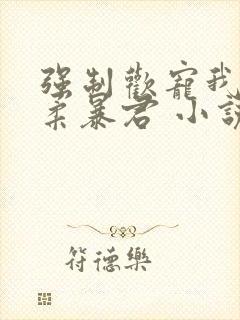 強制歡寵我
柔暴君 小說
符德樂